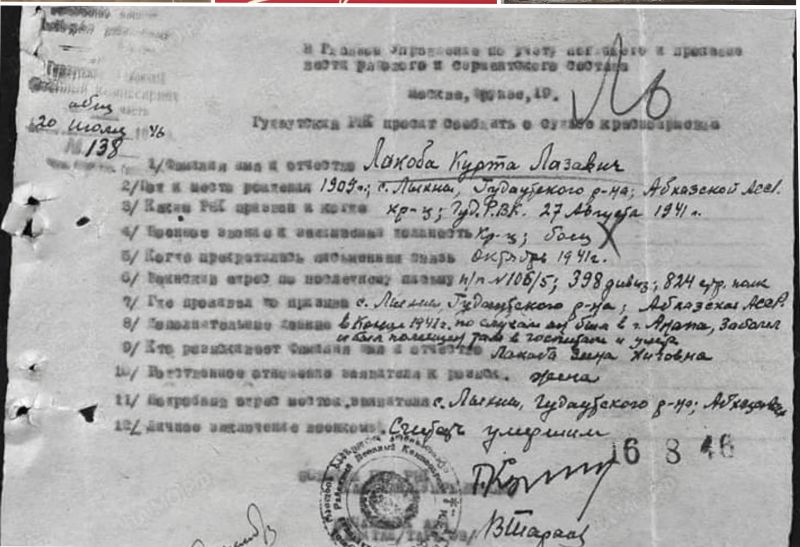 В Главное Управление по учету погибшего и пропавше
Военный Комиссариат
часть
20 июля 46
№ 138
Москва, Фрунзе, 19.
Гудаутский РВК просит сообщить о судьбе красноармейца
1/ Фамилия имя и отчество Лакоба Курта Лазавич
2/ Год и место рождения 1909 г.; с. Лыхны, Гудаутского р-на; Абхазской АССР.
3/ Каким РВК призван и когда кр-ц; Гуд. РВК. 27 Августа 1941 г.
4/ Военное звание и занимаемая должность Кр-ц; боец
5/ Когда прекратилась письменная связь Октябрь 1941 г.
6/ Воинский адрес по последнему письму п/п № 106/5; 398 дивиз; 824 стр. полк
7/ Где проживал до призыва с. Лыхны, Гудаутского р-на; Абхазская АССР.
8/ Дополнительные данные в Конце 1941 г. по случаю он был в г. Анапа, Заболел
и был помещен там в госпиталь и умер
9/ Кто разыскивает Фамилия имя и отчество Лакоба
10/ Родственное отношение заявителя к розыск. жена
11/ Подробный адрес заявителя с. Лыхны, Гудаутского р-на; Абхазская
12/ Личное заключение военкома. Считать умершим
16 8 46